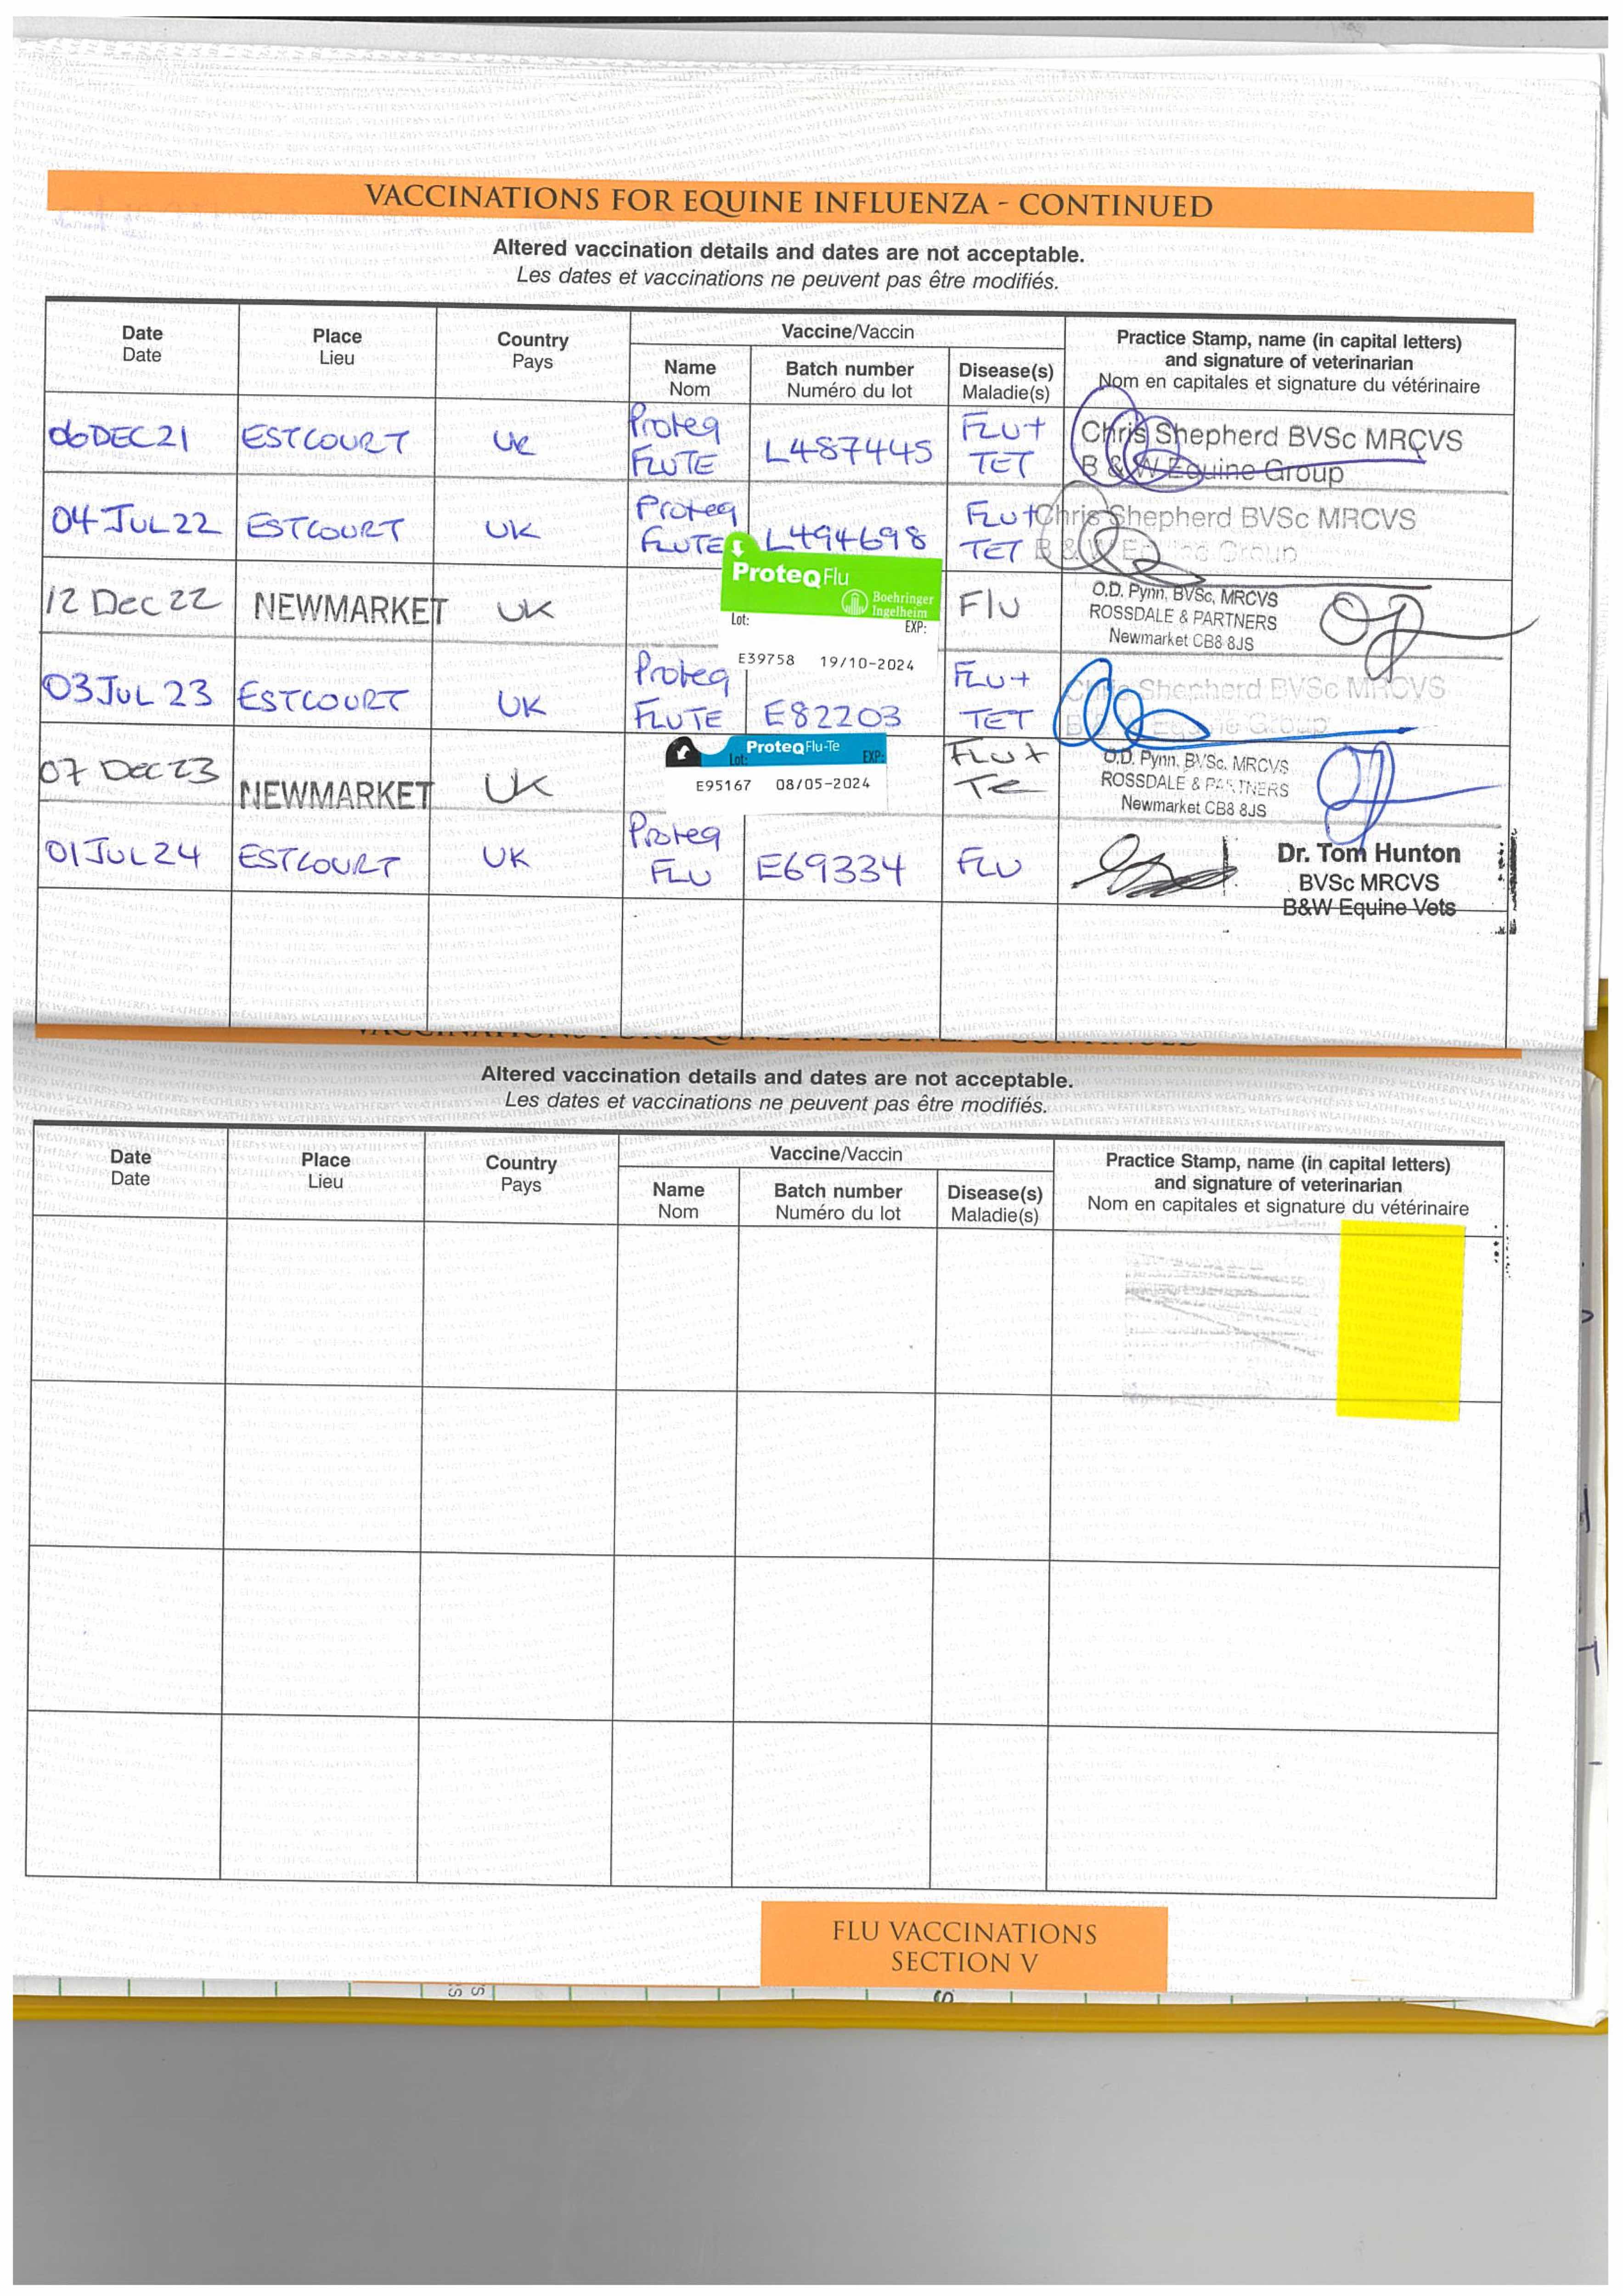 VACCINATIONS FOR EQUINE INFLUENZA - CONTINUED
Altered vaccination details and dates are not acceptable.
Les dates et vaccinations ne peuvent pas être modifiés.
Date
Date
Place
Lieu
Country
Pays
Vaccine/Vaccin
Name
Nom
Batch number
Numéro du lot
Disease(s)
Maladie(s)
Practice Stamp, name (in capital letters)
and signature of veterinarian
Nom en capitales et signature du vétérinaire
06DEC21 ESTCOURT UK
Proteq
FLUTE
L487445
FLU+
TET
Chris Shepherd BVSc MRCVS
B & W Equine Group
04 JUL22 ESTCOURT UK
Proteq
FLUTE
L494698
FLU+
TET
Chris Shepherd BVSc MRCVS
B & W Equine Group
12 Dec 22 NEWMARKET UK
ProteqFlu
Boehringer
Ingelheim
Lot: EXP:
E39758 19/10-2024
Flu
O.D. Pynn, BVSc, MRCVS
ROSSDALE & PARTNERS
Newmarket CB8 8JS
03JUL 23 ESTCOURT UK
Proteq
FLUTE
E82203
FLU+
TET
Chris Shepherd BVSc MRCVS
B & W Equine Group
07 Dec 23 NEWMARKET UK
ProteqFlu-Te
Lot: EXP:
E95167 08/05-2024
FLU+
Te
O.D. Pynn, BVSc, MRCVS
ROSSDALE & PARTNERS
Newmarket CB8 8JS
01JUL24 ESTCOURT UK
Proteq
FLU
E69334
FLU
Dr. Tom Hunton
BVSc MRCVS
B&W Equine Vets
Altered vaccination details and dates are not acceptable.
Les dates et vaccinations ne peuvent pas être modifiés.
Date
Date
Place
Lieu
Country
Pays
Vaccine/Vaccin
Name
Nom
Batch number
Numéro du lot
Disease(s)
Maladie(s)
Practice Stamp, name (in capital letters)
and signature of veterinarian
Nom en capitales et signature du vétérinaire
FLU VACCINATIONS
SECTION V